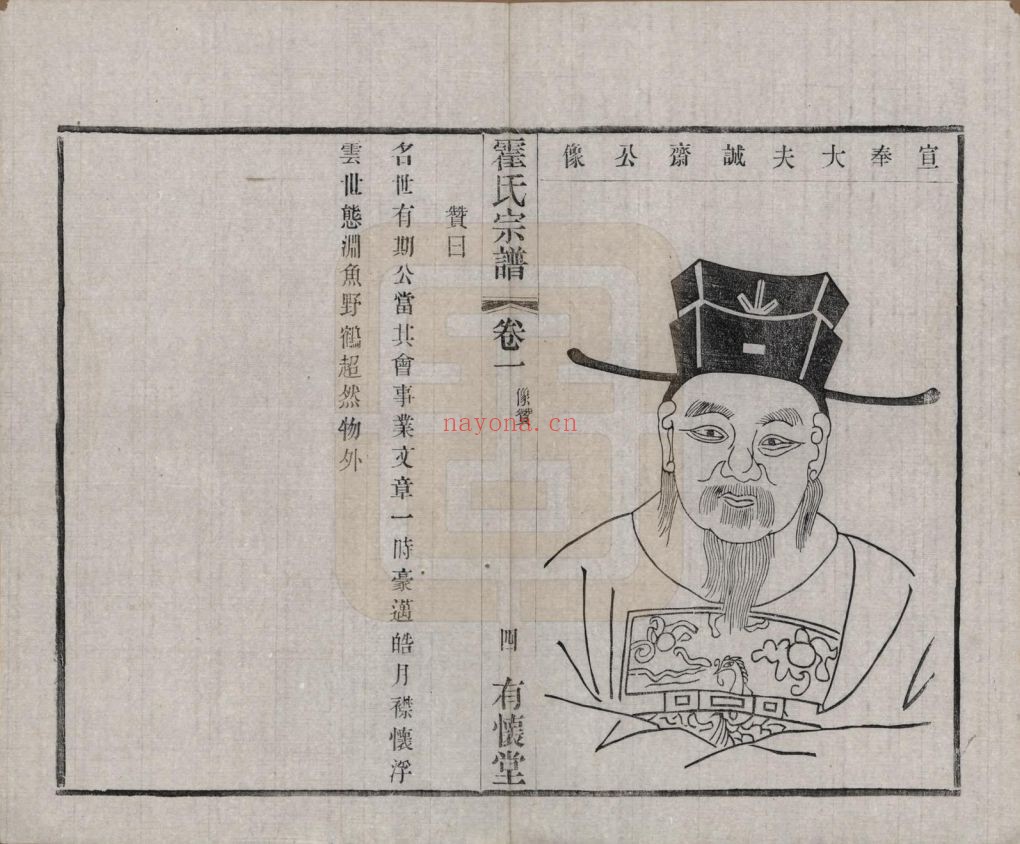 宣奉大夫誠齋公像
霍氏宗譜
卷一
像贊
四
有懷堂
贊曰
名世有期公當其會事業文章一時豪邁皓月襟懷浮
雲世態淵魚野鶴超然物外
nayona.cn